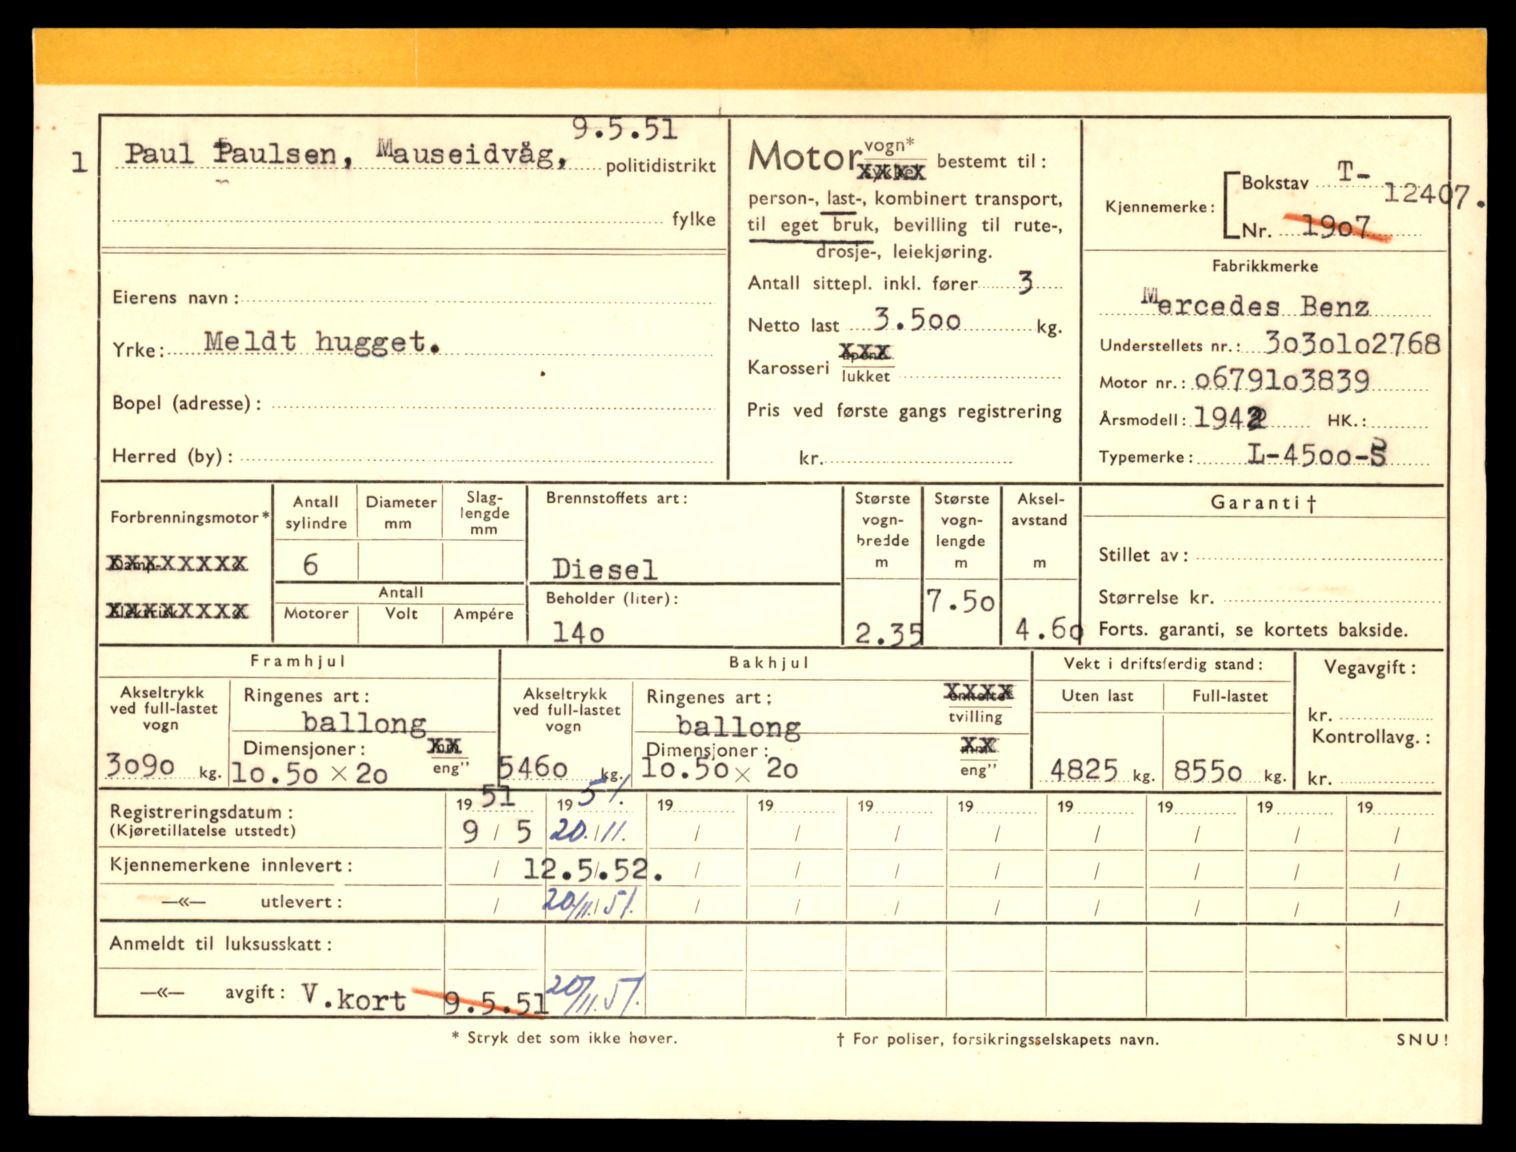 9.5.51
1 Paul Paulsen, Mauseidvåg, politidistrikt
fylke
Eierens navn:
Yrke: Meldt hugget.
Bopel (adresse):
Herred (by):
Motor vogn* bestemt til:
person-, last-, kombinert transport,
til eget bruk, bevilling til rute-,
drosje-, leiekjøring.
Antall sittepl. inkl. fører 3
Netto last 3.500 kg.
Karosseri XXX
lukket
Pris ved første gangs registrering
kr.
Kjennemerke: Bokstav T-
12407.
Nr. 1907
Fabrikkmerke
Mercedes Benz
Understellets nr.: 3030102768
Motor nr.: 0679103839
Årsmodell: 1942 HK.:
Typemerke: L-4500-S
Forbrenningsmotor*
XXXXXXXX
XXXXXXXX
Antall sylindre
Diameter mm
Slag-lengde mm
6
Antall
Motorer Volt Ampére
Brennstoffets art:
Diesel
Beholder (liter):
140
Største vogn-bredde m
2.35
Største vogn-lengde m
7.50
Aksel-avstand m
4.60
Garanti †
Stillet av:
Størrelse kr.
Forts. garanti, se kortets bakside.
Framhjul
Akseltrykk ved full-lastet vogn
3090 kg.
Ringenes art:
ballong
Dimensjoner: XX
10.50 × 20 eng”
Bakhjul
Akseltrykk ved full-lastet vogn
5460 kg.
Ringenes art: XXXX
ballong tvilling
Dimensjoner: XX
10.50 × 20 eng”
Vekt i driftsferdig stand:
Uten last Full-lastet
4825 kg. 8550 kg.
Vegavgift:
kr.
Kontrollavg.:
kr.
Registreringsdatum: 19 51 19 51. 19 19 19 19 19 19 19 19
(Kjøretillatelse utstedt) 9 / 5 20./11. / / / / / / / /
Kjennemerkene innlevert: / 12.5/.52. / / / / / / / /
—«— utlevert: / 20/11. 51. / / / / / / / /
Anmeldt til luksusskatt:
—«— avgift: V.kort 9.5.51 20/11.51.
* Stryk det som ikke høver. † For poliser, forsikringsselskapets navn. SNU!